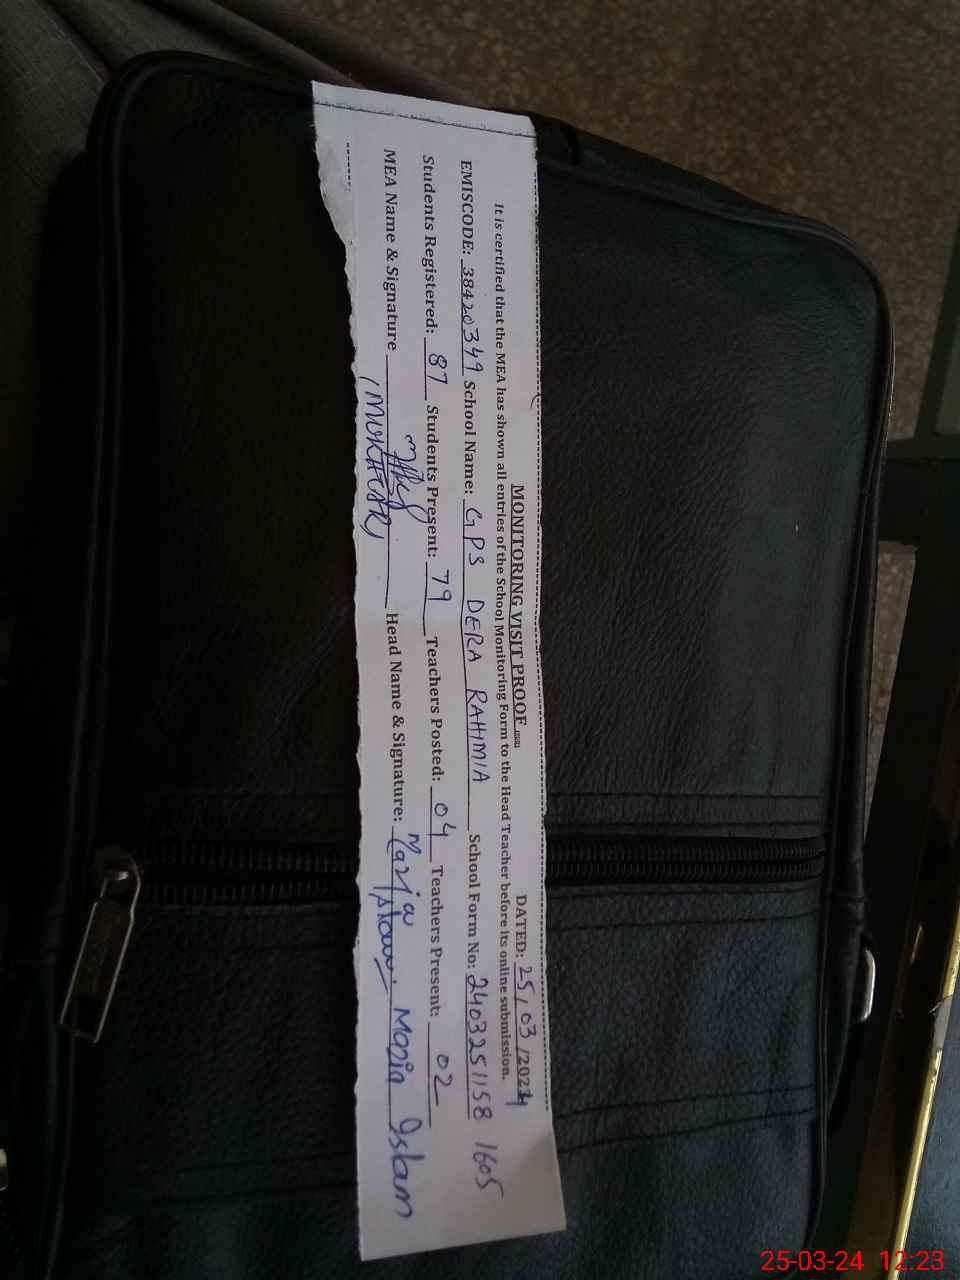 MONITORING VISIT PROOF DATED: 25/03/2024
It is certified that the MEA has shown all entries of the School Monitoring Form to the Head Teacher before its online submission.
EMISCODE: 38420349 School Name: GPS DERA RAHIMIA School Form No: 2403251158 1605
Students Registered: 87 Students Present: 79 Teachers Posted: 04 Teachers Present: 02
MEA Name & Signature (MUKHTAR) Head Name & Signature: Mazia Islam
25-03-24 12:23